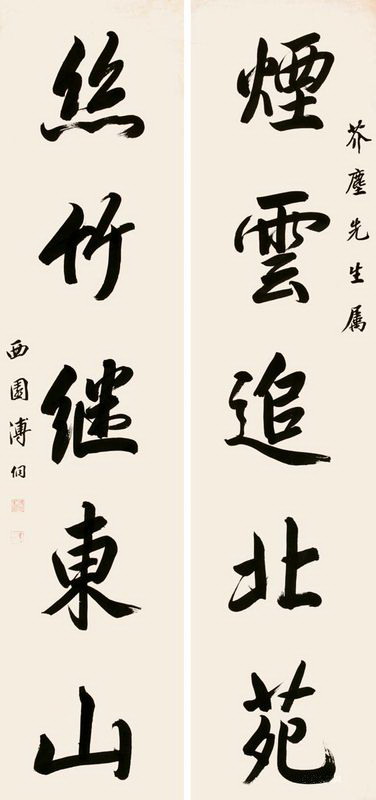 芥塵先生属
煙雲追北苑
絲竹继東山
西園溥侗